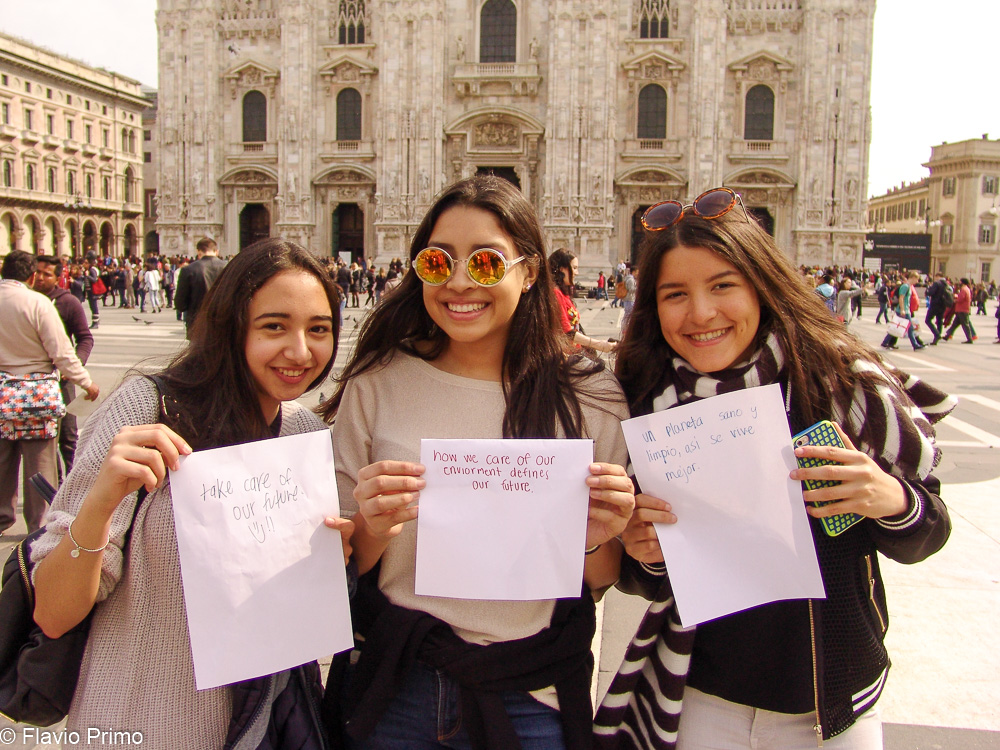 take care of
our future.
!!
how we care of our
enviorment defines
our future.
un planeta sano y
limpio, así se vive
mejor.
© Flavio Primo